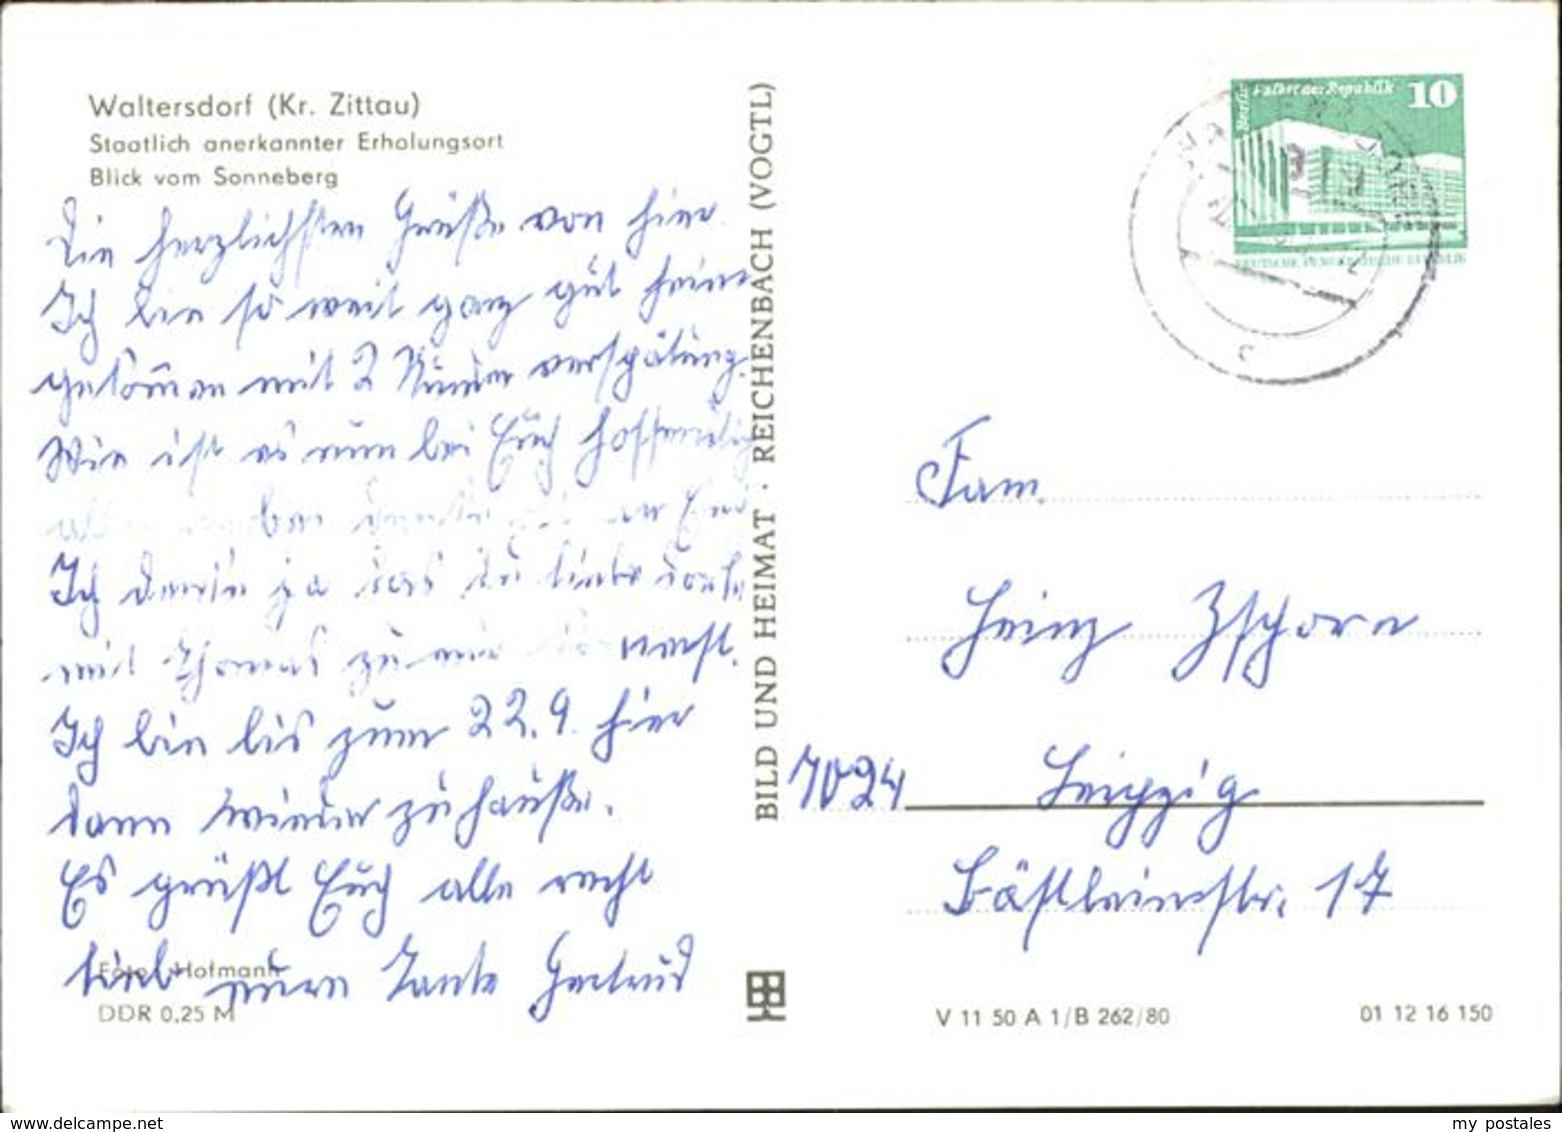 Waltersdorf (Kr. Zittau)
Staatlich anerkannter Erholungsort
Blick vom Sonneberg
Die herzlichsten Grüße von hier
Ich bin so weit ganz gut
gekommen mit 2 verspätung.
Wie ist es nun bei Euch hoffendlich
alles
Ich danke ja das du liebe
mit Thomas zu mir warst.
Ich bin bis zum 22.9. hier
dann wieder zuhauße.
Es grüßt Euch alle recht
lieb eure Tante Gertrud
Foto: Hofmann
DDR 0,25 M
BILD UND HEIMAT · REICHENBACH (VOGTL)
Berlin Palast der Republik 10
DEUTSCHE DEMOKRATISCHE REPUBLIK
Fam.
Heinz Zschorn
7024 Leipzig
Bästleinstr. 17
V 11 50 A 1/B 262/80
01 12 16 150
www.delcampe.net
my_postales